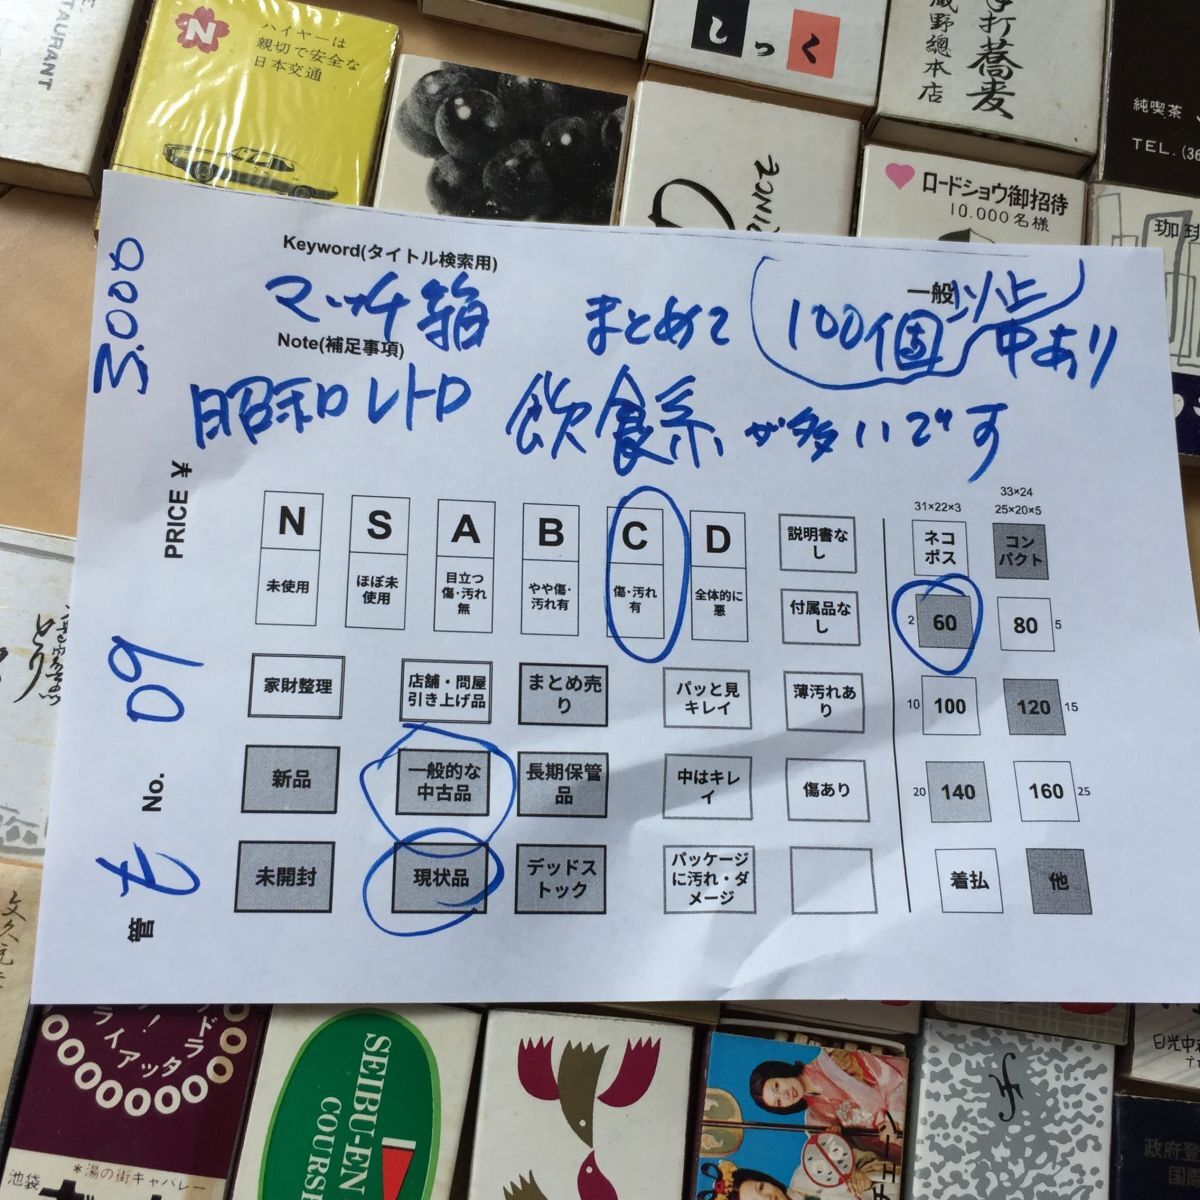 TAURANT
N
ハイヤーは
親切で安全な
日本交通
しっく
手打蕎麦
蔵野總本店
純喫茶
TEL.(36
ロードショウ御招待
10.000名様
珈琲
Keyword(タイトル検索用)
一般
マッチ箱 まとめて (100個以上) 中あり
Note(補足事項)
昭和レトロ 飲食系が多いです
PRICE ¥
3.000
管 No.
も 09
N
未使用
S
ほぼ未使用
A
目立つ傷・汚れ無
B
やや傷・汚れ有
C
傷・汚れ有
D
全体的に悪
説明書なし
付属品なし
31×22×3
ネコポス
33×24
25×20×5
コンパクト
2 60
80 5
家財整理
店舗・問屋引き上げ品
まとめ売り
パッと見キレイ
薄汚れあり
10 100
120 15
新品
一般的な中古品
長期保管品
中はキレイ
傷あり
20 140
160 25
未開封
現状品
デッドストック
パッケージに汚れ・ダメージ
着払
他
文久元
ライアッタ
池袋
*湯の街キャバレー
SEIBU-EN
COURSE
チェーン
日光中
政府登
国